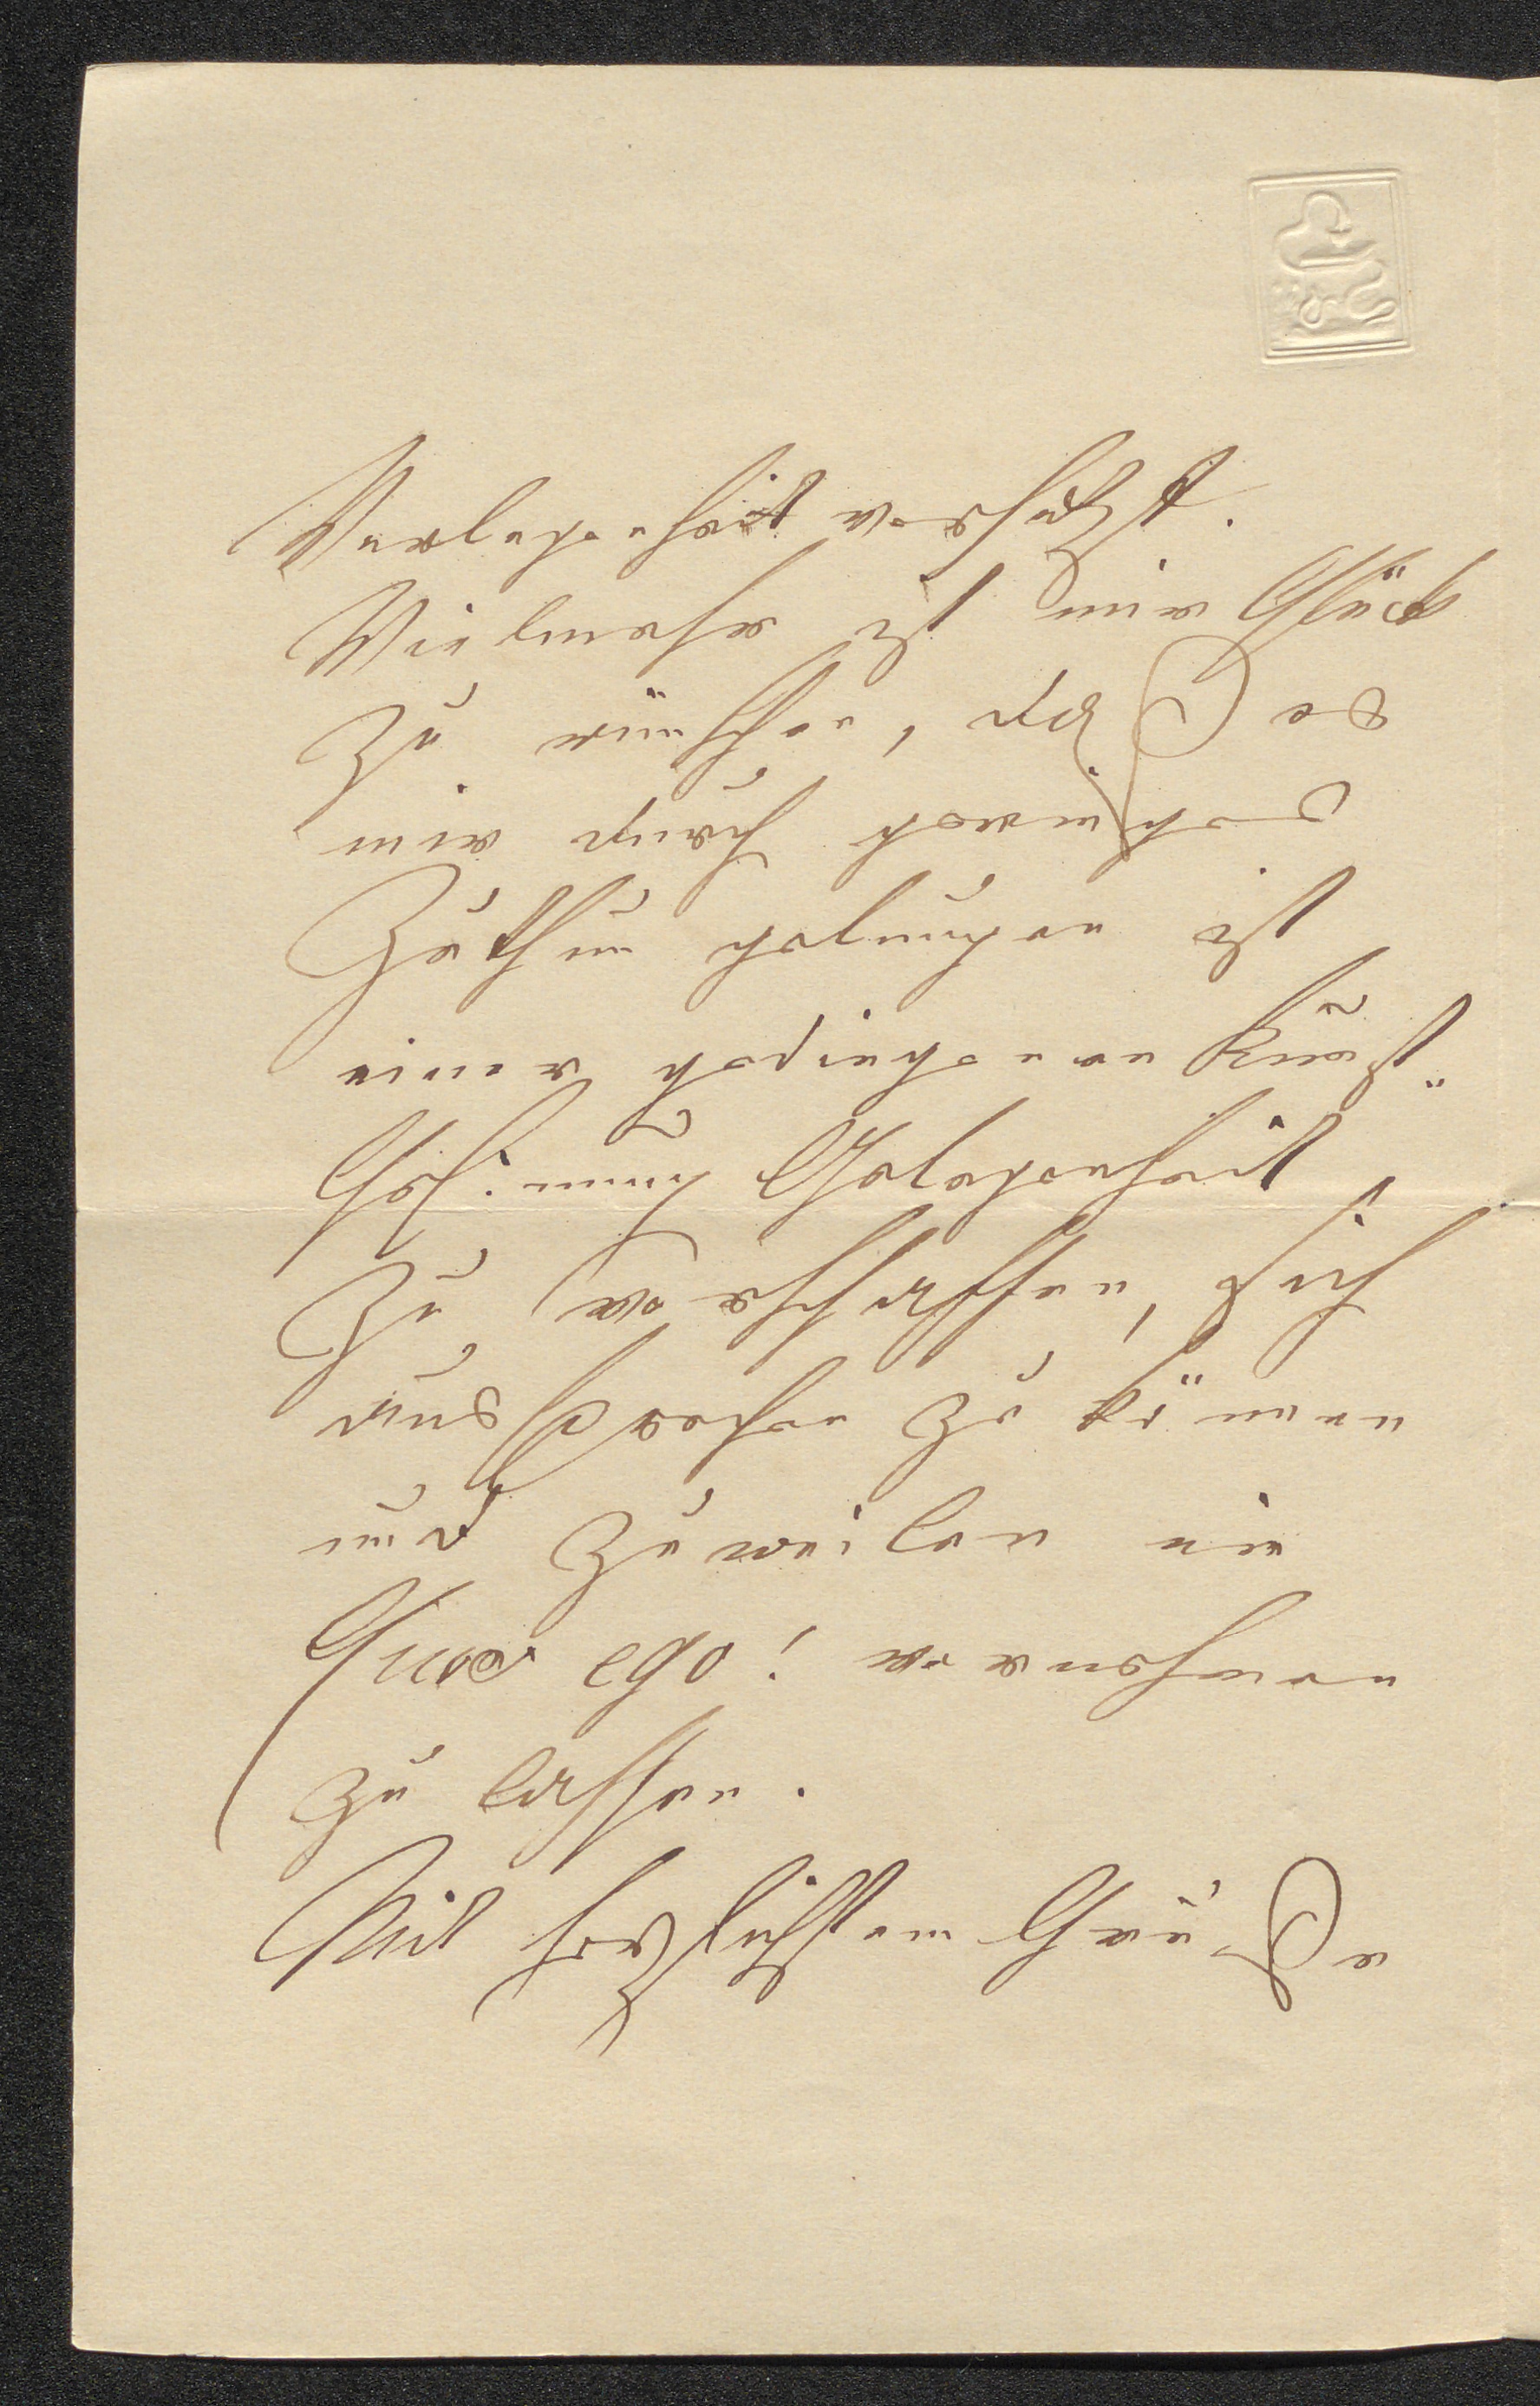 Verlegenheit versetzt.
Vielmehr ist mir Glück
zu wünschen, daß es
mir durch
Zuthun gelungen ist
einer gediegenen Kunst-
Gesinnung Gelegenheit
zu verschaffen, sich
aussprechen zu können
und zuweilen ein
Quos ego! vernehmen
zu lassen.
Mit herzlichstem Gruße